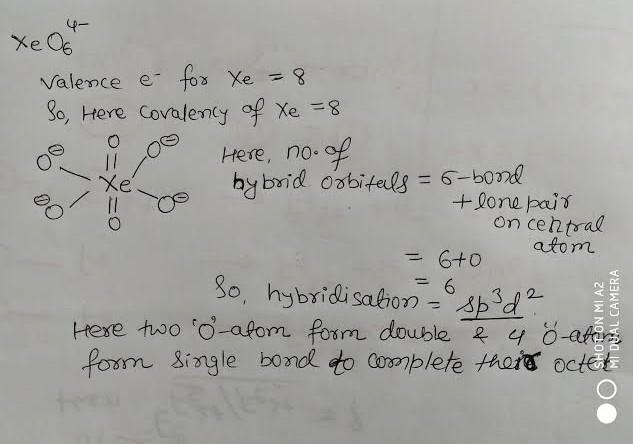 XeO₆⁴⁻
Valence e⁻ for Xe = 8
So, Here Covalency of Xe = 8
O O⊖
O⊖ || Here, no. of
Xe hybrid orbitals = σ-bond
⊖O || O⊖ + lone pair
O on central
atom
= 6+0
= 6
So, hybridisation = sp³d²
Here two 'O'-atom form double & 4 'O'-atom
form single bond to complete their octet
SHOT ON MI A2
MI DUAL CAMERA